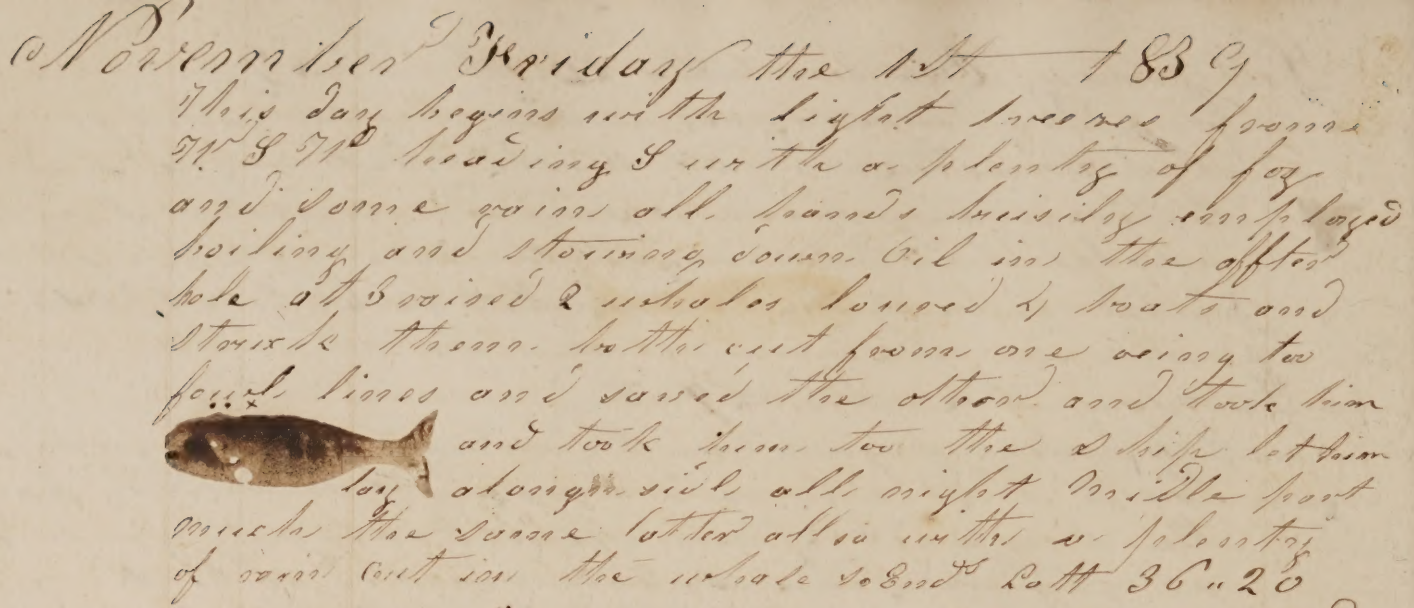 November Friday the 1st 1839
This day begins with light breezes from
W S W heading S with a plenty of fog
and some rain all hands buisily employed
boiling and stowing down Oil in the after
hole at 3 raised 2 whales lowred 4 boats and
struck them both cut from one oeing too
foul lines and saved the other and took him
and took him too the ship let him
lay alongside all night Midle part
much the same latter allso with a plenty
of rain cut in the whale so Ends Latt 36 " 20